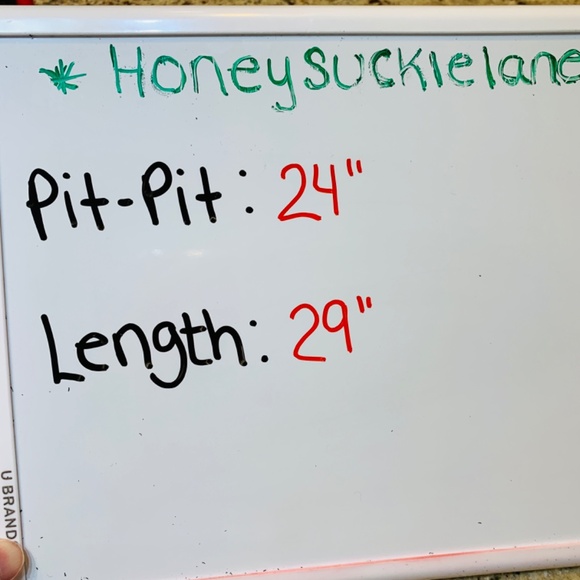 * Honeysuckle lane
Pit-Pit: 24"
Length: 29"
U BRAND